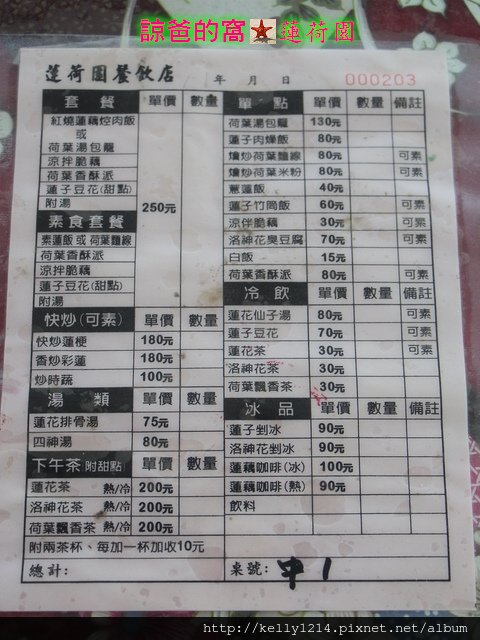 諒爸的窩 蓮荷園
蓮荷園餐飲店 年 月 日 000203
套餐 單價 數量
紅燒蓮藕焢肉飯
或
荷葉湯包龍
涼拌脆藕
荷葉香酥派
蓮子豆花(甜點)
附湯
250元
素食套餐
素蓮飯 或 荷葉麵線
荷葉香酥派
涼拌脆藕
蓮子豆花(甜點)
附湯
快炒(可素) 單價 數量
快炒蓮梗 180元
香炒彩蓮 180元
炒時蔬 100元
湯類 單價 數量
蓮花排骨湯 75元
四神湯 80元
下午茶 附甜點 單價 數量
蓮花茶 熱/冷 200元
洛神花茶 熱/冷 200元
荷葉飄香茶 熱/冷 200元
附兩茶杯、每加一杯加收10元
總計:
單點 單價 數量 備註
荷葉湯包龍 130元
蓮子肉燥飯 80元
燴炒荷葉麵線 80元 可素
燴炒荷葉米粉 80元 可素
薏蓮飯 40元
蓮子竹筒飯 60元 可素
涼伴脆藕 30元 可素
洛神花臭豆腐 70元 可素
白飯 15元
荷葉香酥派 80元 可素
冷飲 單價 數量 備註
蓮花仙子湯 80元 可素
蓮子豆花 70元 可素
蓮花茶 30元 可素
洛神花茶 30元
荷葉飄香茶 30元
冰品 單價 數量 備註
蓮子剉冰 90元
洛神花剉冰 90元
蓮藕咖啡(冰) 100元
蓮藕咖啡(熱) 90元
飲料
桌號: 中1
http://kelly1214.pixnet.net/album